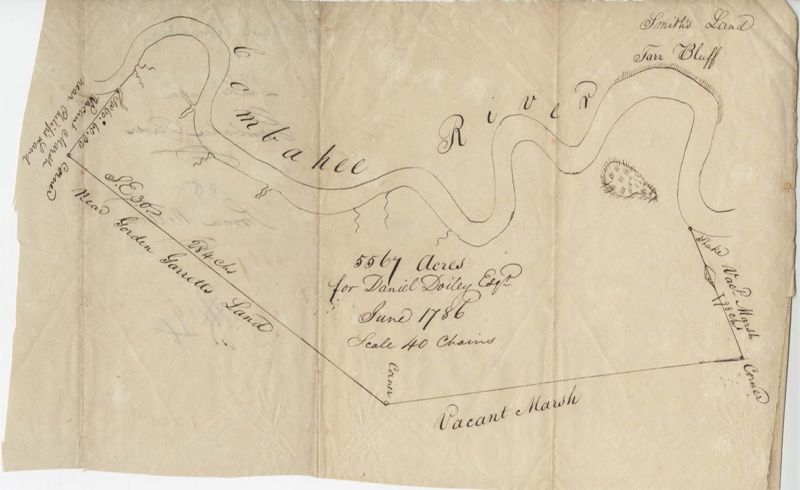 Smith's Land
Tarr Bluff
Combahee River
Vacant Marsh
near Philip's Land
Corner
S.E 30
284 Chs
Near Gorden Garretts Land
5567 Acres
for Daniel Doiley Esqr
June 1786
Scale 40 Chains
Corner
Vacant Marsh
Stake
Vact. Marsh
98 Chs
Corner